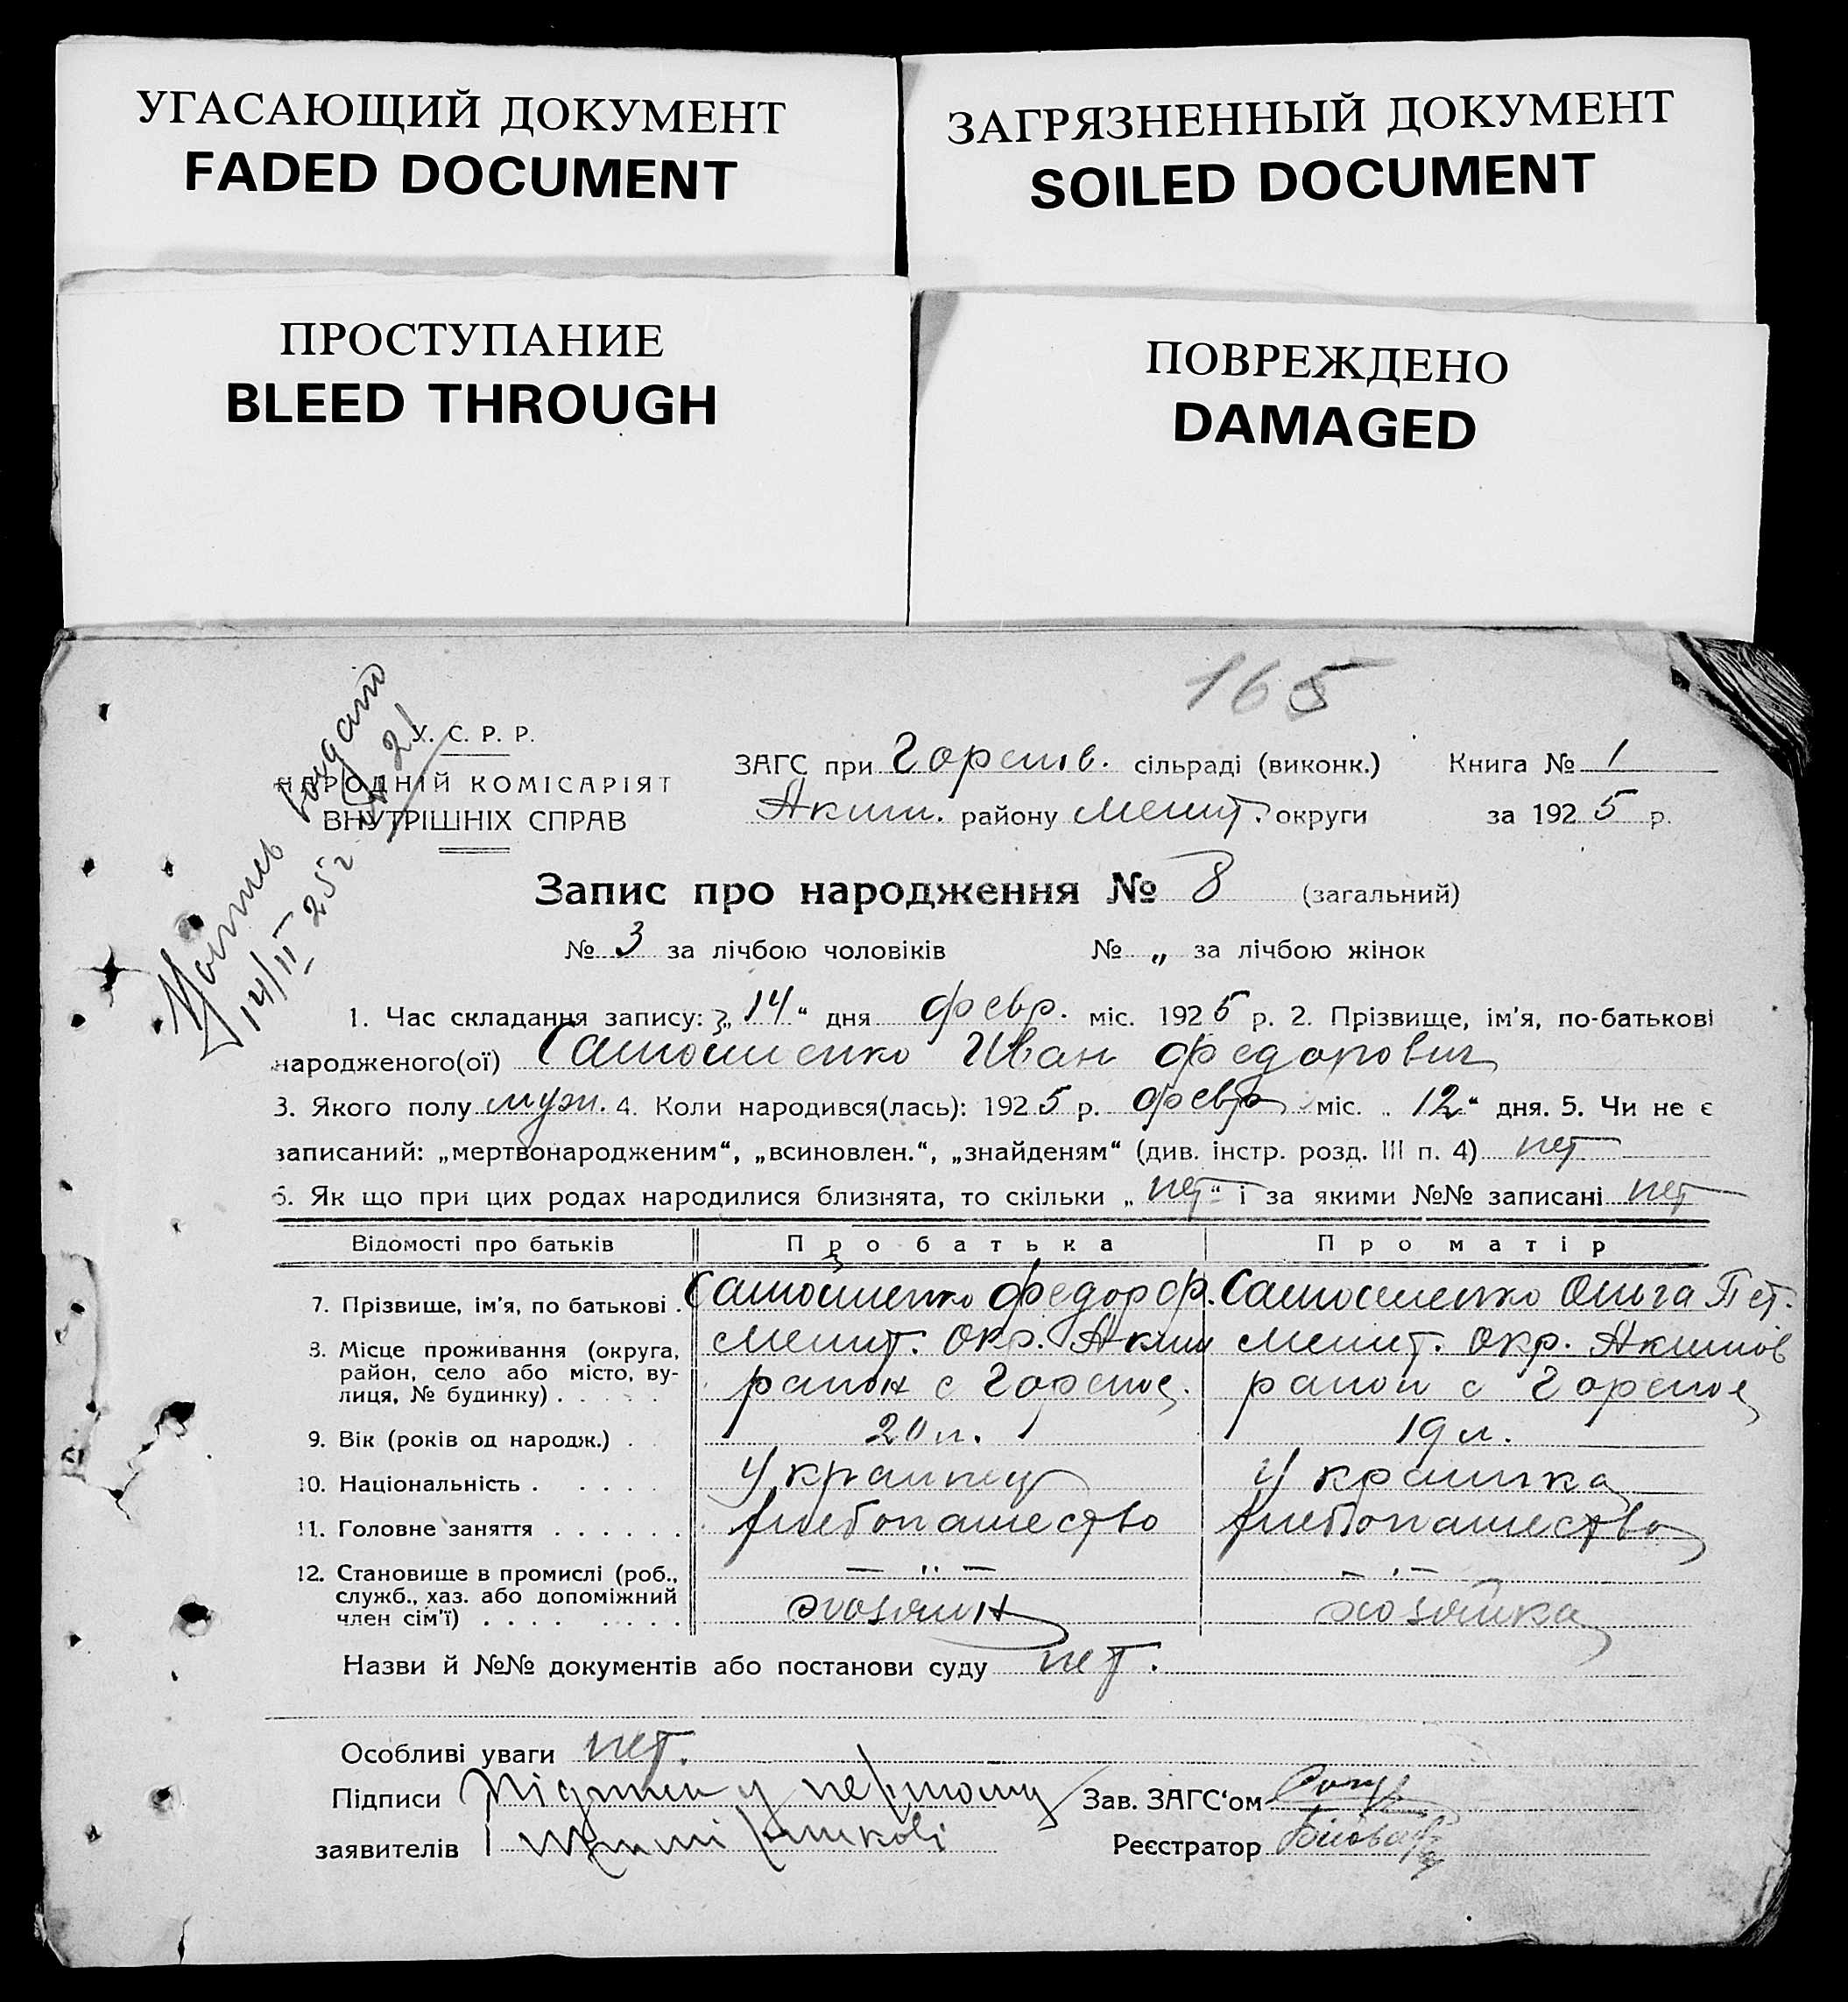 УГАСАЮЩИЙ ДОКУМЕНТ
FADED DOCUMENT
ЗАГРЯЗНЕННЫЙ ДОКУМЕНТ
SOILED DOCUMENT
ПРОСТУПАНИЕ
BLEED THROUGH
ПОВРЕЖДЕНО
DAMAGED
165
Витяг видано
14/II 25 г № 21
У. С. Р. Р.
НАРОДНІЙ КОМІСАРІЯТ
ВНУТРІШНІХ СПРАВ
ЗАГС при Горенів. сільраді (виконк.) Книга № 1
Аким. району Меліт. округи за 1925 р.
Запис про народження № 8 (загальний)
№ 3 за лічбою чоловіків № „ за лічбою жінок
1. Час складання запису: „14“ дня февр. міс. 1925 р. 2. Прізвище, ім'я, по-батькові
народженого(ої) Самошенко Иван Федорович
3. Якого полу муж. 4. Коли народився(лась): 1925 р. февр міс. „12“ дня. 5. Чи не є
записаний: „мертвонародженим“, „всиновлен.“, „знайденям“ (див. інстр. розд. III п. 4) нет
6. Як що при цих родах народилися близнята, то скільки „нет“ і за якими №№ записані нет
Відомості про батьків Про батька Про матір
7. Прізвище, ім'я, по батькові . Самошенко Федор Ф. Самошенко Ольга Пет.
8. Місце проживання (округа, Мелит. Окр. Аким Мелит. Окр. Акимов
район, село або місто, ву- район с Гореное. район с Гореное
лиця, № будинку) . . . . .
9. Вік (років од народж.) . . 20 л. 19 л.
10. Національність . . . . . Украинец Украинка
11. Головне заняття . . . . . . хлебопашество хлебопашество
12. Становище в промислі (роб., — „ — — „ —
служб., хаз. або допоміжний хозяин хозяйка
член сім'ї) . . . . . . . .
Назви й №№ документів або постанови суду нет.
Особливі уваги нет.
Підписи Підписи у первому Зав. ЗАГС'ом
заявителів Реєстратор